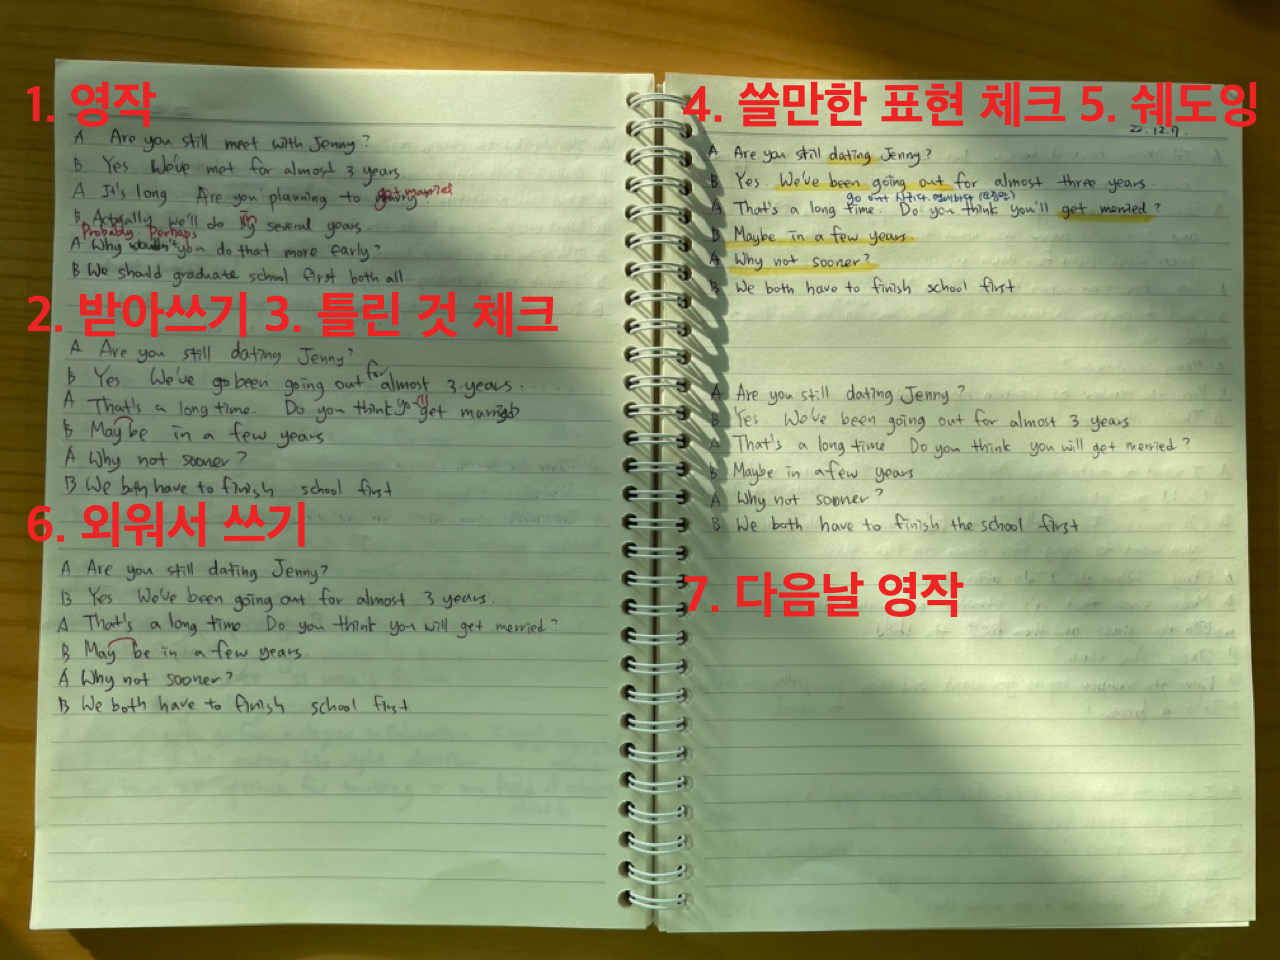 1. 영작
A Are you still meet with Jenny?
B Yes We've met for almost 3 years
A It's long Are you planning to get married
B Actually we'll do in several years
Probably Perhaps
A Why wouldn't you do that more early?
B We should graduate school first both all
2. 받아쓰기 3. 틀린 것 체크
A Are you still dating Jenny?
B Yes We've go been going out for almost 3 years.
A That's a long time. Do you think you'll get married
B May be in a few years
A Why not sooner?
B We both have to finish school first
6. 외워서 쓰기
A Are you still dating Jenny?
B Yes We've been going out for almost 3 years.
A That's a long time Do you think you will get merried?
B May be in a few years
A Why not sooner?
B We both have to finish school first
4. 쓸만한 표현 체크 5. 쉐도잉
22.12.7.
A Are you still dating Jenny?
B Yes We've been going out for almost three years.
go out 사귀다, 연애하다
A That's a long time. Do you think you'll get merried?
B Maybe in a few years.
A Why not sooner?
B We both have to finish school first
A Are you still dating Jenny?
B Yes We've been going out for almost 3 years
A That's a long time Do you think you will get merried?
B Maybe in a few years
A Why not sooner?
B We both have to finish the school first
7. 다음날 영작